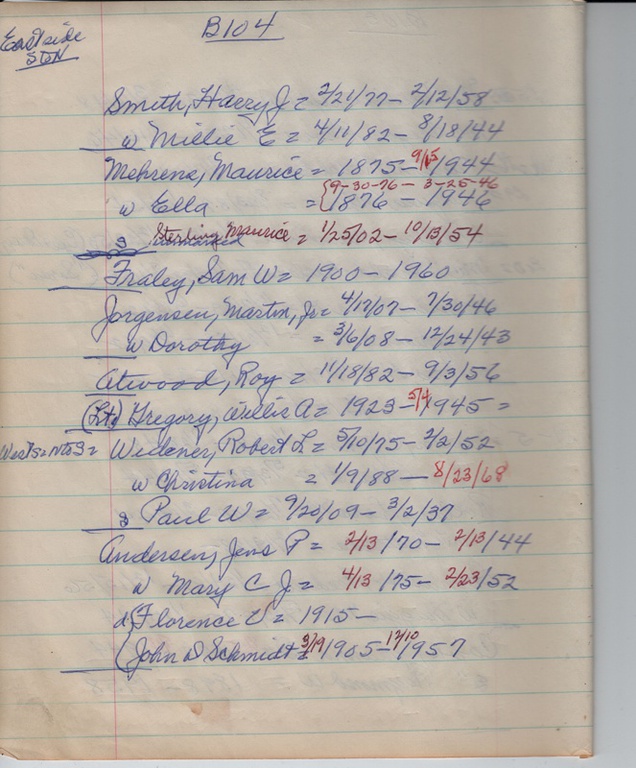 East side
StoN
B104
Smith, Harry J = 2/21/77 - 2/12/58
w Millie E = 4/11/82 - 8/18/44
Mehrens, Maurice = 1875 - 9/15 1944
9-30-76 - 3-25-46
w Ella = { 1876 - 1946
s Sterling Maurice = 1/25/02 - 10/13/54
Fraley, Sam W = 1900 - 1960
Jorgensen, Martin, Jr = 4/17/07 - 7/30/46
w Dorothy = 3/6/08 - 12/24/43
Atwood, Roy = 11/18/82 - 9/3/56
(Lt) Gregory, Willis A = 1923 - 5/4 1945 =
West S = NtoS = Widener, Robert L = 5/10/75 - 2/2/52
w Christina = 1/9/88 - 8/23/68
s Paul W = 9/20/09 - 3/2/37
Andersen, Jens P = 2/13/70 - 2/13/44
w Mary C J = 4/13/75 - 2/23/52
d { Florence V = 1915 -
{ John D Schmidt = 3/19 1905 - 12/10 1957